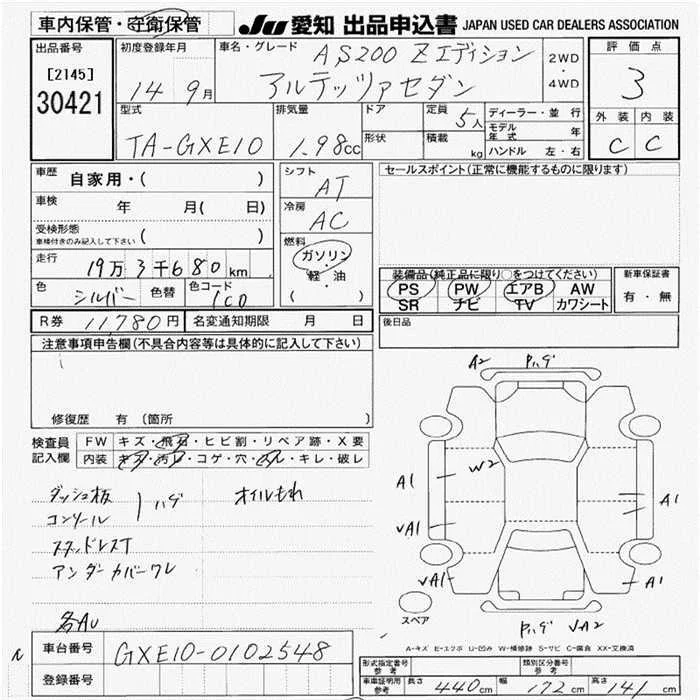 車内保管・守衛保管
JU 愛知 出品申込書 JAPAN USED CAR DEALERS ASSOCIATION
出品番号
[2145]
30421
初度登録年月
14年 9月
車名・グレード
AS200 Zエディション
アルテッツァセダン
2WD
・
4WD
評価点
3
外装 内装
C C
型式
TA-GXE10
排気量
1.98cc
ドア
形状
定員
5人
積載
kg
ディーラー・並行
モデル年式 年
ハンドル 左・右
車歴
自家用・( )
車検
年 月( 日)
受検形態
車検付きのみ記入して下さい ( )
走行
19万3千680km
色
シルバー
色替
色コード
1C0
シフト
AT
冷房
AC
燃料
ガソリン
・
軽・油
( )
セールスポイント(正常に機能するものに限ります)
装備品(純正品に限り○をつけてください)
PS PW エアB AW
SR ナビ TV カワシート
新車保証書
有・無
R券 11,780円
名変通知期限 月 日
後日品
注意事項申告欄(不具合内容等は具体的に記入して下さい)
修復歴 有 (箇所
検査員
記入欄
FW キズ・飛石・ヒビ割・リペア跡・X要
内装 キズ・汚れ・コゲ・穴・スレ・キレ・破レ
ダッシュ板
コンソール
ハゲ
オイルもれ
スタッドレスT
アンダーカバーワレ
各AU
A2 ハゲ
W2
A1
A1
VA1
VA1
A1
スペア
ハゲ VA2
A-キズ E-エクボ U-凹み W-補修跡 S-サビ C-腐食 XX-交換済
車台番号
GXE10-0102548
登録番号
形式指定番号
参考
類別区分番号
参考
車庫証明用
参考
長さ 440cm 幅 172cm 高さ 141cm